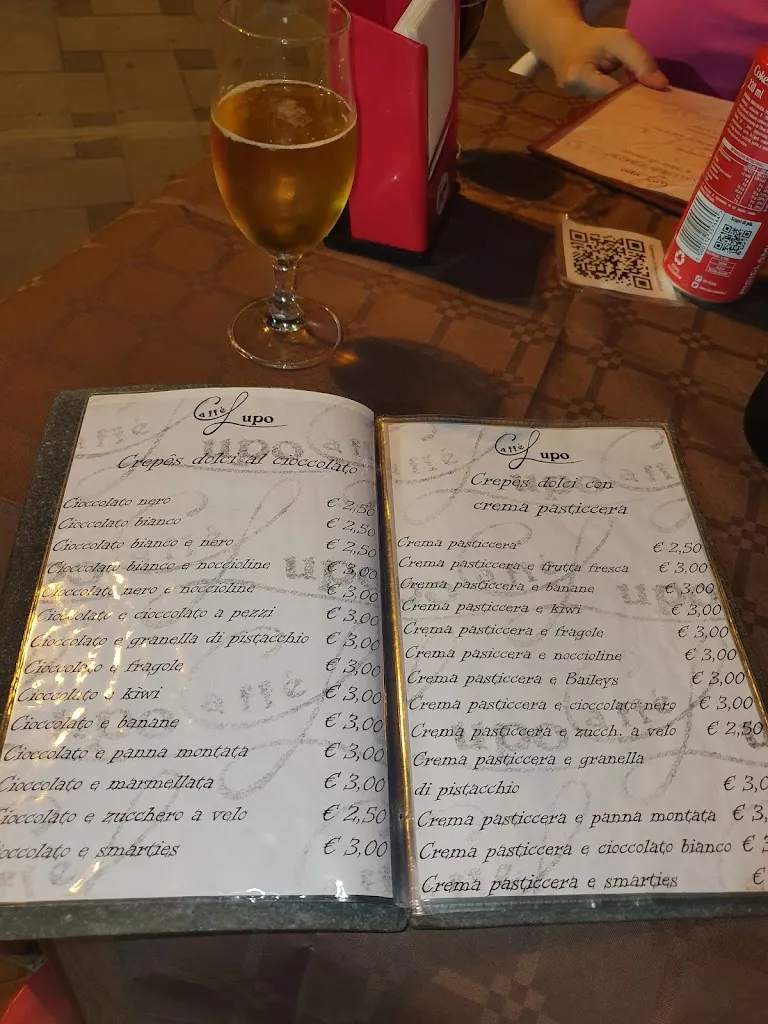 Coke
330 ml
Caffè Lupo
Crepês dolci al cioccolato
Cioccolato nero € 2,50
Cioccolato bianco € 2,50
Cioccolato bianco e nero € 2,50
Cioccolato bianco e noccioline € 3,00
Cioccolato nero e noccioline € 3,00
Cioccolato e cioccolato a pezzi € 3,00
Cioccolato e granella di pistacchio € 3,00
Cioccolato e fragole € 3,00
Cioccolato e kiwi € 3,00
Cioccolato e banane € 3,00
Cioccolato e panna montata € 3,00
Cioccolato e marmellata € 3,00
Cioccolato e zucchero a velo € 2,50
occolato e smarties € 3,00
Caffè Lupo
Crepês dolci con
crema pasticcera
Crema pasticcera € 2,50
Crema pasticcera e frutta fresca € 3,00
Crema pasticcera e banane € 3,00
Crema pasticcera e kiwi € 3,00
Crema pasticcera e fragole € 3,00
Crema pasiccera e noccioline € 3,00
Crema pasticcera e Baileys € 3,00
Crema pasticcera e cioccolato nero € 3,00
Crema pasticcera e zucch. a velo € 2,50
Crema pasticcera e granella
di pistacchio € 3,0
Crema pasticcera e panna montata € 3,
Crema pasticcera e cioccolato bianco € 3
Crema pasticcera e smarties €